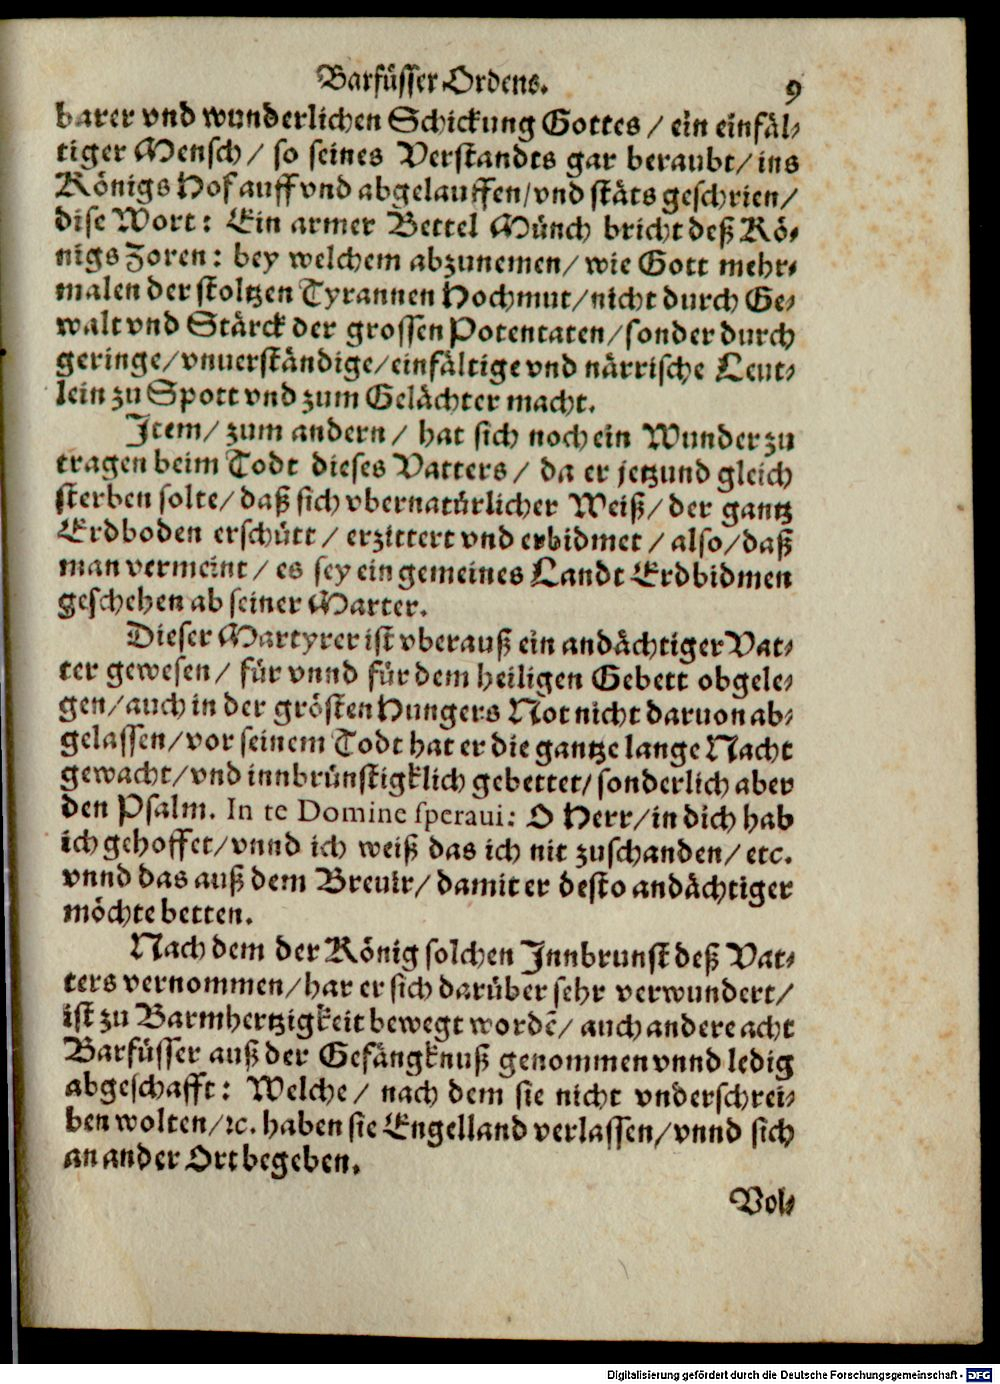 Barfüsser Ordens. 9
barer vnd wunderlichen Schickung Gottes / ein einfäl-
tiger Mensch / so seines Verstandts gar beraubt / ins
Königs Hof auff vnd abgelauffen / vnd stäts geschrien /
dise Wort: Ein armer Bettel Münch bricht deß Kö-
nigs Zoren: bey welchem abzunemen / wie Gott mehr-
malen der stoltzen Tyrannen Hochmut / nicht durch Ge-
walt vnd Stärck der grossen Potentaten / sonder durch
geringe / vnuerständige / einfältige vnd närrische Leut-
lein zu Spott vnd zum Gelächter macht.
Item / zum andern / hat sich noch ein Wunder zu
tragen beim Todt dieses Vatters / da er jetzund gleich
sterben solte / daß sich vbernatürlicher Weiß / der gantz
Erdboden erschütt / erzittert vnd erbidmet / also / daß
man vermeint / es sey ein gemeines Landt Erdbidmen
geschehen ab seiner Marter.
Dieser Martyrer ist vberauß ein andächtiger Vat-
ter gewesen / für vnnd für dem heiligen Gebett obgele-
gen / auch in der grösten Hungers Not nicht daruon ab-
gelassen / vor seinem Todt hat er die gantze lange Nacht
gewacht / vnd innbrünstigklich gebettet / sonderlich aber
den Psalm. In te Domine speraui: O Herr / in dich hab
ich gehoffet / vnnd ich weiß das ich nit zuschanden / etc.
vnnd das auß dem Breuir / damit er desto andächtiger
möchte betten.
Nach dem der König solchen Innbrunst deß Vat-
ters vernommen / har er sich darüber sehr verwundert /
ist zu Barmhertzigkeit bewegt wordē / auch andere acht
Barfüsser auß der Gefängknuß genommen vnnd ledig
abgeschafft: Welche / nach dem sie nicht vnderschrei-
ben wolten / ꝛc. haben sie Engelland verlassen / vnnd sich
an ander Ort begeben.
Vol-
Digitalisierung gefördert durch die Deutsche Forschungsgemeinschaft - DFG